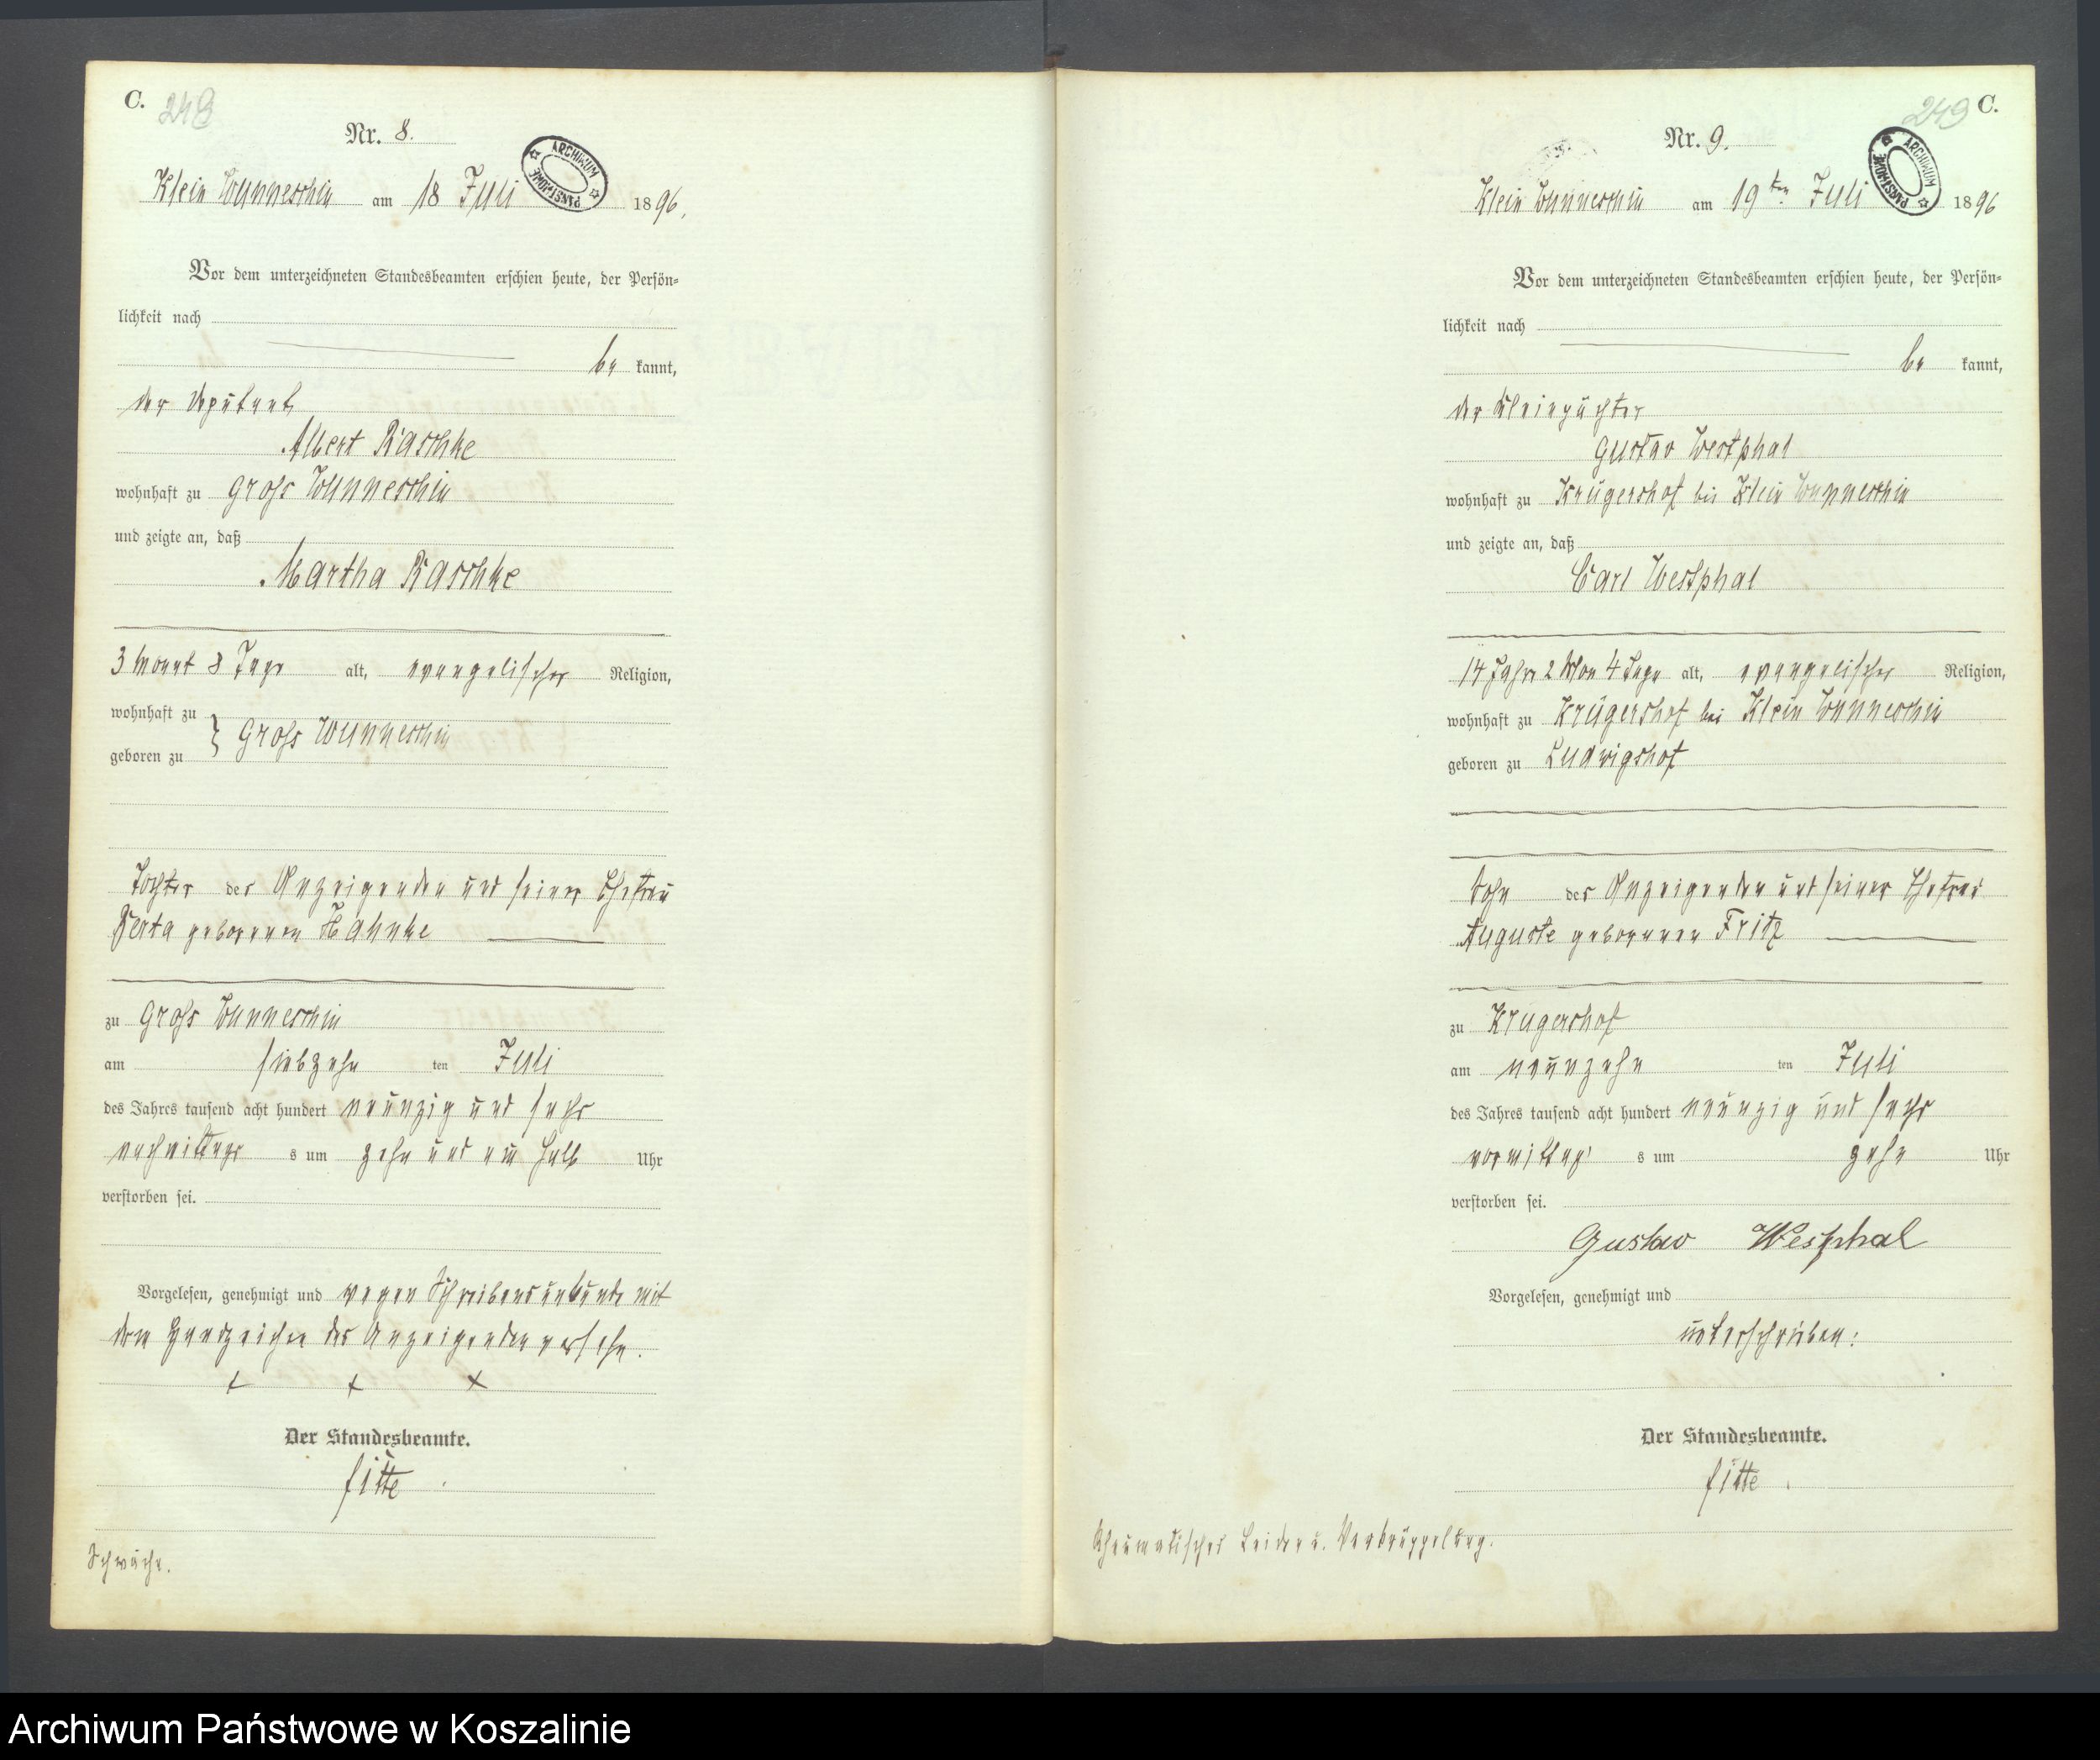 C.
248
Nr. 8.
ARCHIWUM PAŃSTWOWE
Klein Wunneschin am 18 Juli 1896.
Vor dem unterzeichneten Standesbeamten erschien heute, der Persön-
lichkeit nach
be kannt,
der Deputant
Albert Raschke
wohnhaft zu Gross Wunneschin
und zeigte an, daß
Martha Raschke
3 Monat 8 Tage alt, evangelischer Religion,
wohnhaft zu
} Gross Wunneschin
geboren zu
Tochter des Anzeigenden und seiner Ehefrau
Berta geborenen Hahnke
zu Gross Wunneschin
am siebzehn ten Juli
des Jahres tausend acht hundert neunzig und sechs
nachmittags s um zehn und ein halb Uhr
verstorben sei.
Vorgelesen, genehmigt und wegen Schreibensunkunde mit
dem Handzeichen des Anzeigenden versehn.
+ + +
Der Standesbeamte.
fitte
Schwäche.
249 C.
Nr. 9.
ARCHIWUM PAŃSTWOWE
Klein Wunneschin am 19ten Juli 1896
Vor dem unterzeichneten Standesbeamten erschien heute, der Persön-
lichkeit nach
be kannt,
der Kleinpächter
Gustav Westphal
wohnhaft zu Krügershof bei Klein Wunneschin
und zeigte an, daß
Carl Westphal
14 Jahre 2 Mon 4 Tage alt, evangelischer Religion,
wohnhaft zu Krügershof bei Klein Wunneschin
geboren zu Ludwigshof
Sohn des Anzeigenden und seiner Ehefrau
Auguste geborenen Fritz
zu Krügershof
am neunzehn ten Juli
des Jahres tausend acht hundert neunzig und sechs
vormittag s um zehn Uhr
verstorben sei.
Gustav Westphal
Vorgelesen, genehmigt und
unterschrieben:
Der Standesbeamte.
fitte
Rheumatisches Leiden u. Verkrüppelung.
Archiwum Państwowe w Koszalinie